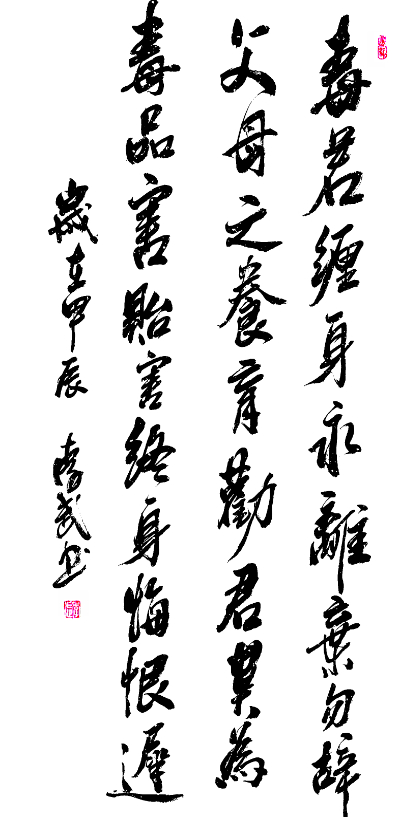 毒若缠身永離棄勿辞
父母之養育勸君莫為
毒品害貽害终身悔恨遲
歲在甲辰 李武书